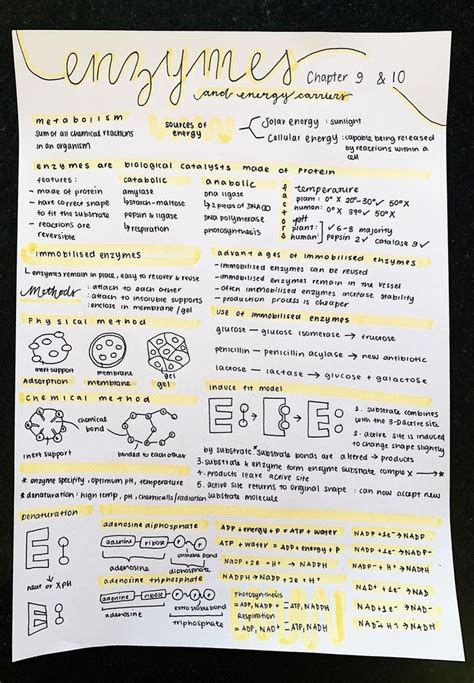 enzymes
Chapter 9 & 10
and energy carriers
metabolism
sum of all chemical reactions
in an organism
sources of
energy
Solar energy : sunlight
Cellular energy : capable being released
by reactions within a
cell
enzymes are biological catalysts made of protein
features :
- made of protein
- have correct shape
to fit the substrate
- reactions are
reversible
catabolic
amylase
↳ starch - maltose
pepsin & ligase
↳ respiration
anabolic
DNA ligase
↳ 2 pieces of DNA
DNA polymerase
photosynthesis
factors
temperature
plant : 0°X 20°-30°✓ 50°X
human : 0°X 39°✓ 50°X
plant : ✓ 6-8 majority
human : pepsin 2 ✓ catalase 9 ✓
immobilised enzymes
↳ enzymes remain in place, easy to recover & reuse
Methods :
: attach to each other
: attach to insoluble supports
: enclose in membrane / gel
advantages of immobilised enzymes
- immobilised enzymes can be reused
- immobilised enzymes remain in the vessel
- often immobilised enzymes increase stability
- production process is cheaper
Physical method
inert support
membrane
gel
Adsorption
membrane
gel
use of immobilised enzymes
glucose — glucose isomerase → fructose
penicillin — penicillin acylase → new antibiotic
lactose — lactase → glucose + galactose
chemical method
chemical
bond
inert support
bonded to each other
induce fit model
1. substrate combines
with the 3-D active site
2. active site is induced
to change shape slightly
by substrate. Substrate bonds are altered → products
3. substrate & enzyme form enzyme substrate complex
4. products leave active site
5. active site returns to original shape : can now accept new
substrate molecule
* enzyme specificity, optimum pH, temperature
* denaturation : high temp, pH, chemicals/radiation
Denaturation
heat or XpH
adenosine diphosphate
adenine ribose P P
unstable bond
adenosine
diphosphate
adenosine triphosphate
adenine ribose P P P
extra unstable bond
adenosine
triphosphate
ADP + energy + P = ATP + water
ATP + water = ADP + energy + P
NADP+ + 2e- + H+ → NADPH
NADPH → NADP+ + 2e- + H+
Photosynthesis
= ADP, NADP+ = ATP, NADPH
Respiration
= ADP, NAD+ = ATP, NADH
NADP+ + 1e- → NADP
NADP + 1e- → NADP-
NADP- + H+ → NADPH
NAD+ + 1e- → NAD
NAD + 1e- → NAD-
NAD- + H+ → NADH